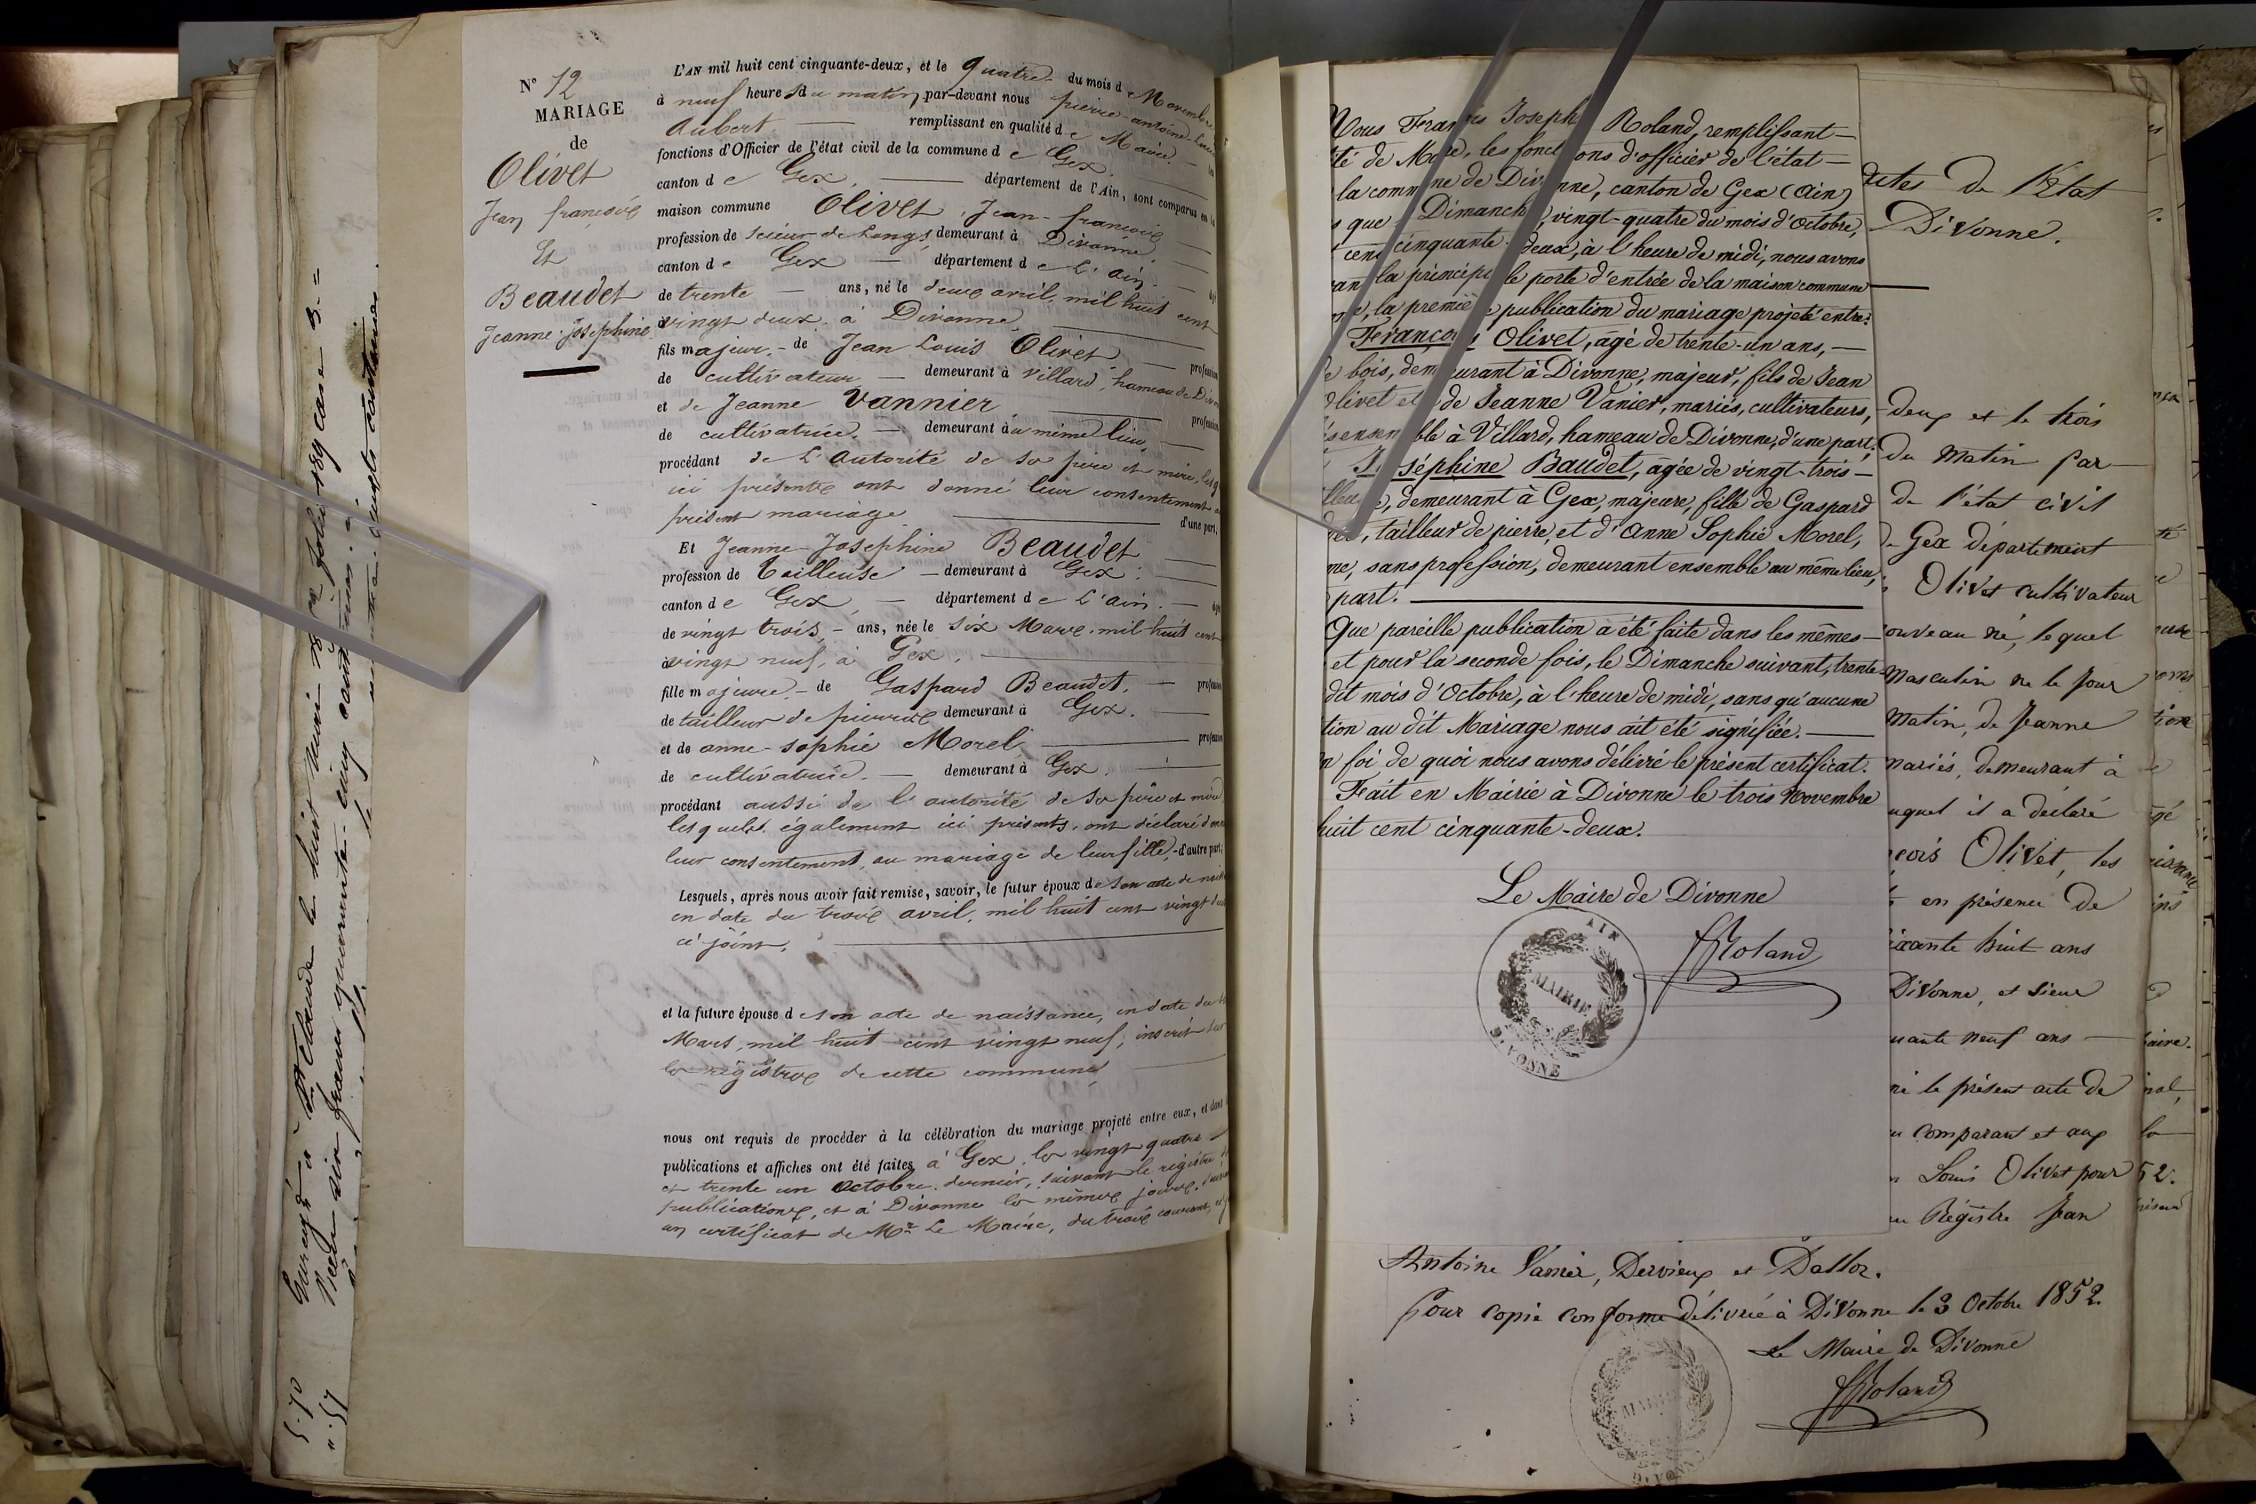 N° 12
MARIAGE
de
Olivet
Jean françois
Et
Beaudet
Jeanne-Josephine
L'AN mil huit cent cinquante-deux, et le quatre du mois de Novembre
à neuf heures du matin, par-devant nous pierre-antoine-
Aubert remplissant en qualité de Maire.
fonctions d'Officier de l'état civil de la commune de Gex.
canton de Gex. département de l'Ain, sont comparus en la
maison commune Olivet, Jean-françois
profession de scieur de Longs, demeurant à Divonne
canton de Gex département de L'ain.
de trente ans, né le deux avril, mil huit cent
vingt deux, à Divonne
fils majeur - de Jean Louis Olivet profession
de cultivateur demeurant à Villard, hameau de
et de Jeanne Vannier profession
de cultivatrice. demeurant au même lieu
procédant de L'autorité de ses père et mère,
ici présents ont donné leur consentement
présent mariage d'une part,
Et Jeanne-Josephine Beaudet
profession de tailleuse demeurant à Gex.
canton de Gex, département de L'ain.
de vingt trois, ans, née le six Mars, mil huit cent
vingt neuf, à Gex.
fille majeure - de Gaspard Beaudet, profession
de tailleur de pierres demeurant à Gex.
et de anne-sophie Morel profession
de cultivatrice. demeurant à Gex.
procédant aussi de l'autorité de ses père et mère
lesquels également ici présents, ont déclaré
leur consentement, au mariage de leur fille, d'autre part;
Lesquels, après nous avoir fait remise, savoir, le futur époux de son acte de
en date du trois avril, mil huit cent vingt deux
ci joint,
et la future épouse de son acte de naissance, en date du
Mars, mil huit cent vingt neuf, inscrit sur
les régistres de cette commune
nous ont requis de procéder à la célébration du mariage projeté entre eux, et dont
publications et affiches ont été faites à Gex, les vingt quatre
et trente un octobre dernier, suivant le régistre
publications, et à Divonne les mêmes jours,
un certificat de Mr Le Maire, du trois courant,
Nous Francis Joseph Roland, remplissant
té de Maire, les fonctions d'officier de l'état
la commune de Divonne, canton de Gex (Ain)
que Dimanche, vingt-quatre du mois d'Octobre,
cent cinquante-deux, à l'heure de midi, nous avons
la principale porte d'entrée de la maison commune
la première publication du mariage projeté entre:
François Olivet, âgé de trente-un ans,
bois, demeurant à Divonne, majeur, fils de Jean
Olivet et de Jeanne Vanier, mariés, cultivateurs,
ensemble à Villard, hameau de Divonne, d'une part;
Joséphine Baudet, âgée de vingt-trois
demeurant à Gex, majeure, fille de Gaspard
tailleur de pierre, et d'Anne Sophie Morel,
sans profession, demeurant ensemble au même lieu,
part.
Que pareille publication a été faite dans les mêmes
et pour la seconde fois, le Dimanche suivant, trente-
dit mois d'Octobre, à l'heure de midi, sans qu'aucune
tion au dit Mariage nous ait été signifiée.
n foi de quoi nous avons délivré le présent certificat.
Fait en Mairie à Divonne le trois Novembre
huit cent cinquante-deux.
Le Maire de Divonne
AIN
MAIRIE
DIVONNE
Roland
actes de l'Etat
Divonne.
deux et le trois
du matin par
de l'état civil
de Gex département
Olivet cultivateur
ouveau né, lequel
masculin né le jour
matin, de Jeanne
mariés, demeurant à
uquel il a déclaré
çois Olivet, les
en présence de
ixante huit ans
Divonne, et sieur
uante neuf ans
né le présent acte de
comparant et aux
Louis Olivet pour
au Régistre Jean
Antoine Vanier, Dervieux et Dalloz.
Pour copie conforme délivrée à Divonne le 3 Octobre 1852.
Le Maire de Divonne
Roland
MAIRIE